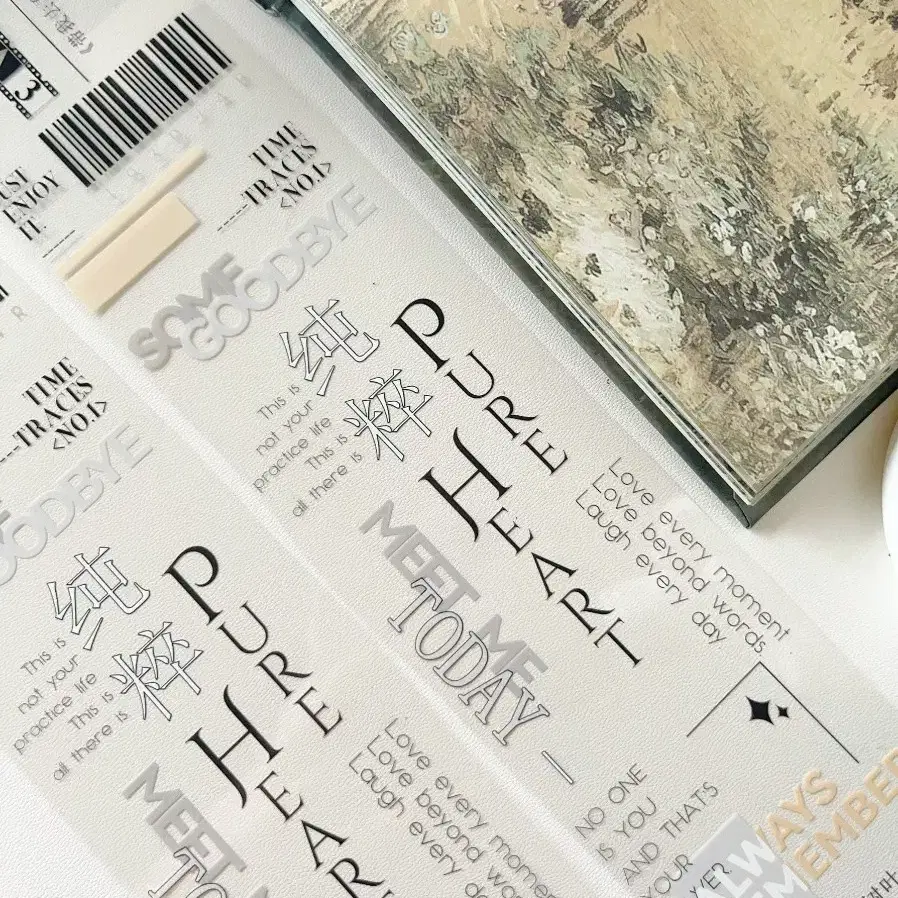 3
UST
ENJOY
IT
TIME
TRACTS
<NO.1>
SOME
GOODBYE
纯粹
PURE
HEART
This is
not your
practice life
This is
all there is
MEET ME
TODAY
Love every moment
Love beyond words.
Laugh every day
NO ONE
IS YOU
AND THAT'S
YOUR
ALWAYS
REMEMBER
TIME
TRACTS
<NO.1>
GOODBYE
纯粹
PURE
HEAR
This is
not your
practice life
This is
all there is
MEET M
TO
Love every momen
Love beyond wo
Laugh every d